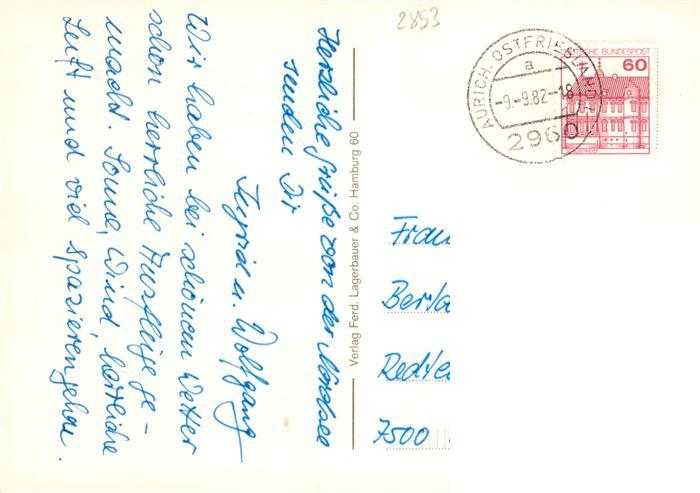 2853
AURICH, OSTFRIESLAND
a
-9.-9.82.-18
2960
DEUTSCHE BUNDESPOST
60
Herzliche Grüße von der Nordsee
senden Dir
Ingrid u. Wolfgang
Wir haben bei schönen Wetter
schon herrliche Ausflüge ge-
macht. Sonne, Wind herrliche
Luft und viel spazierengehen.
Verlag Ferd. Lagerbauer & Co. Hamburg 60
Frau
Berta
Redte
7500